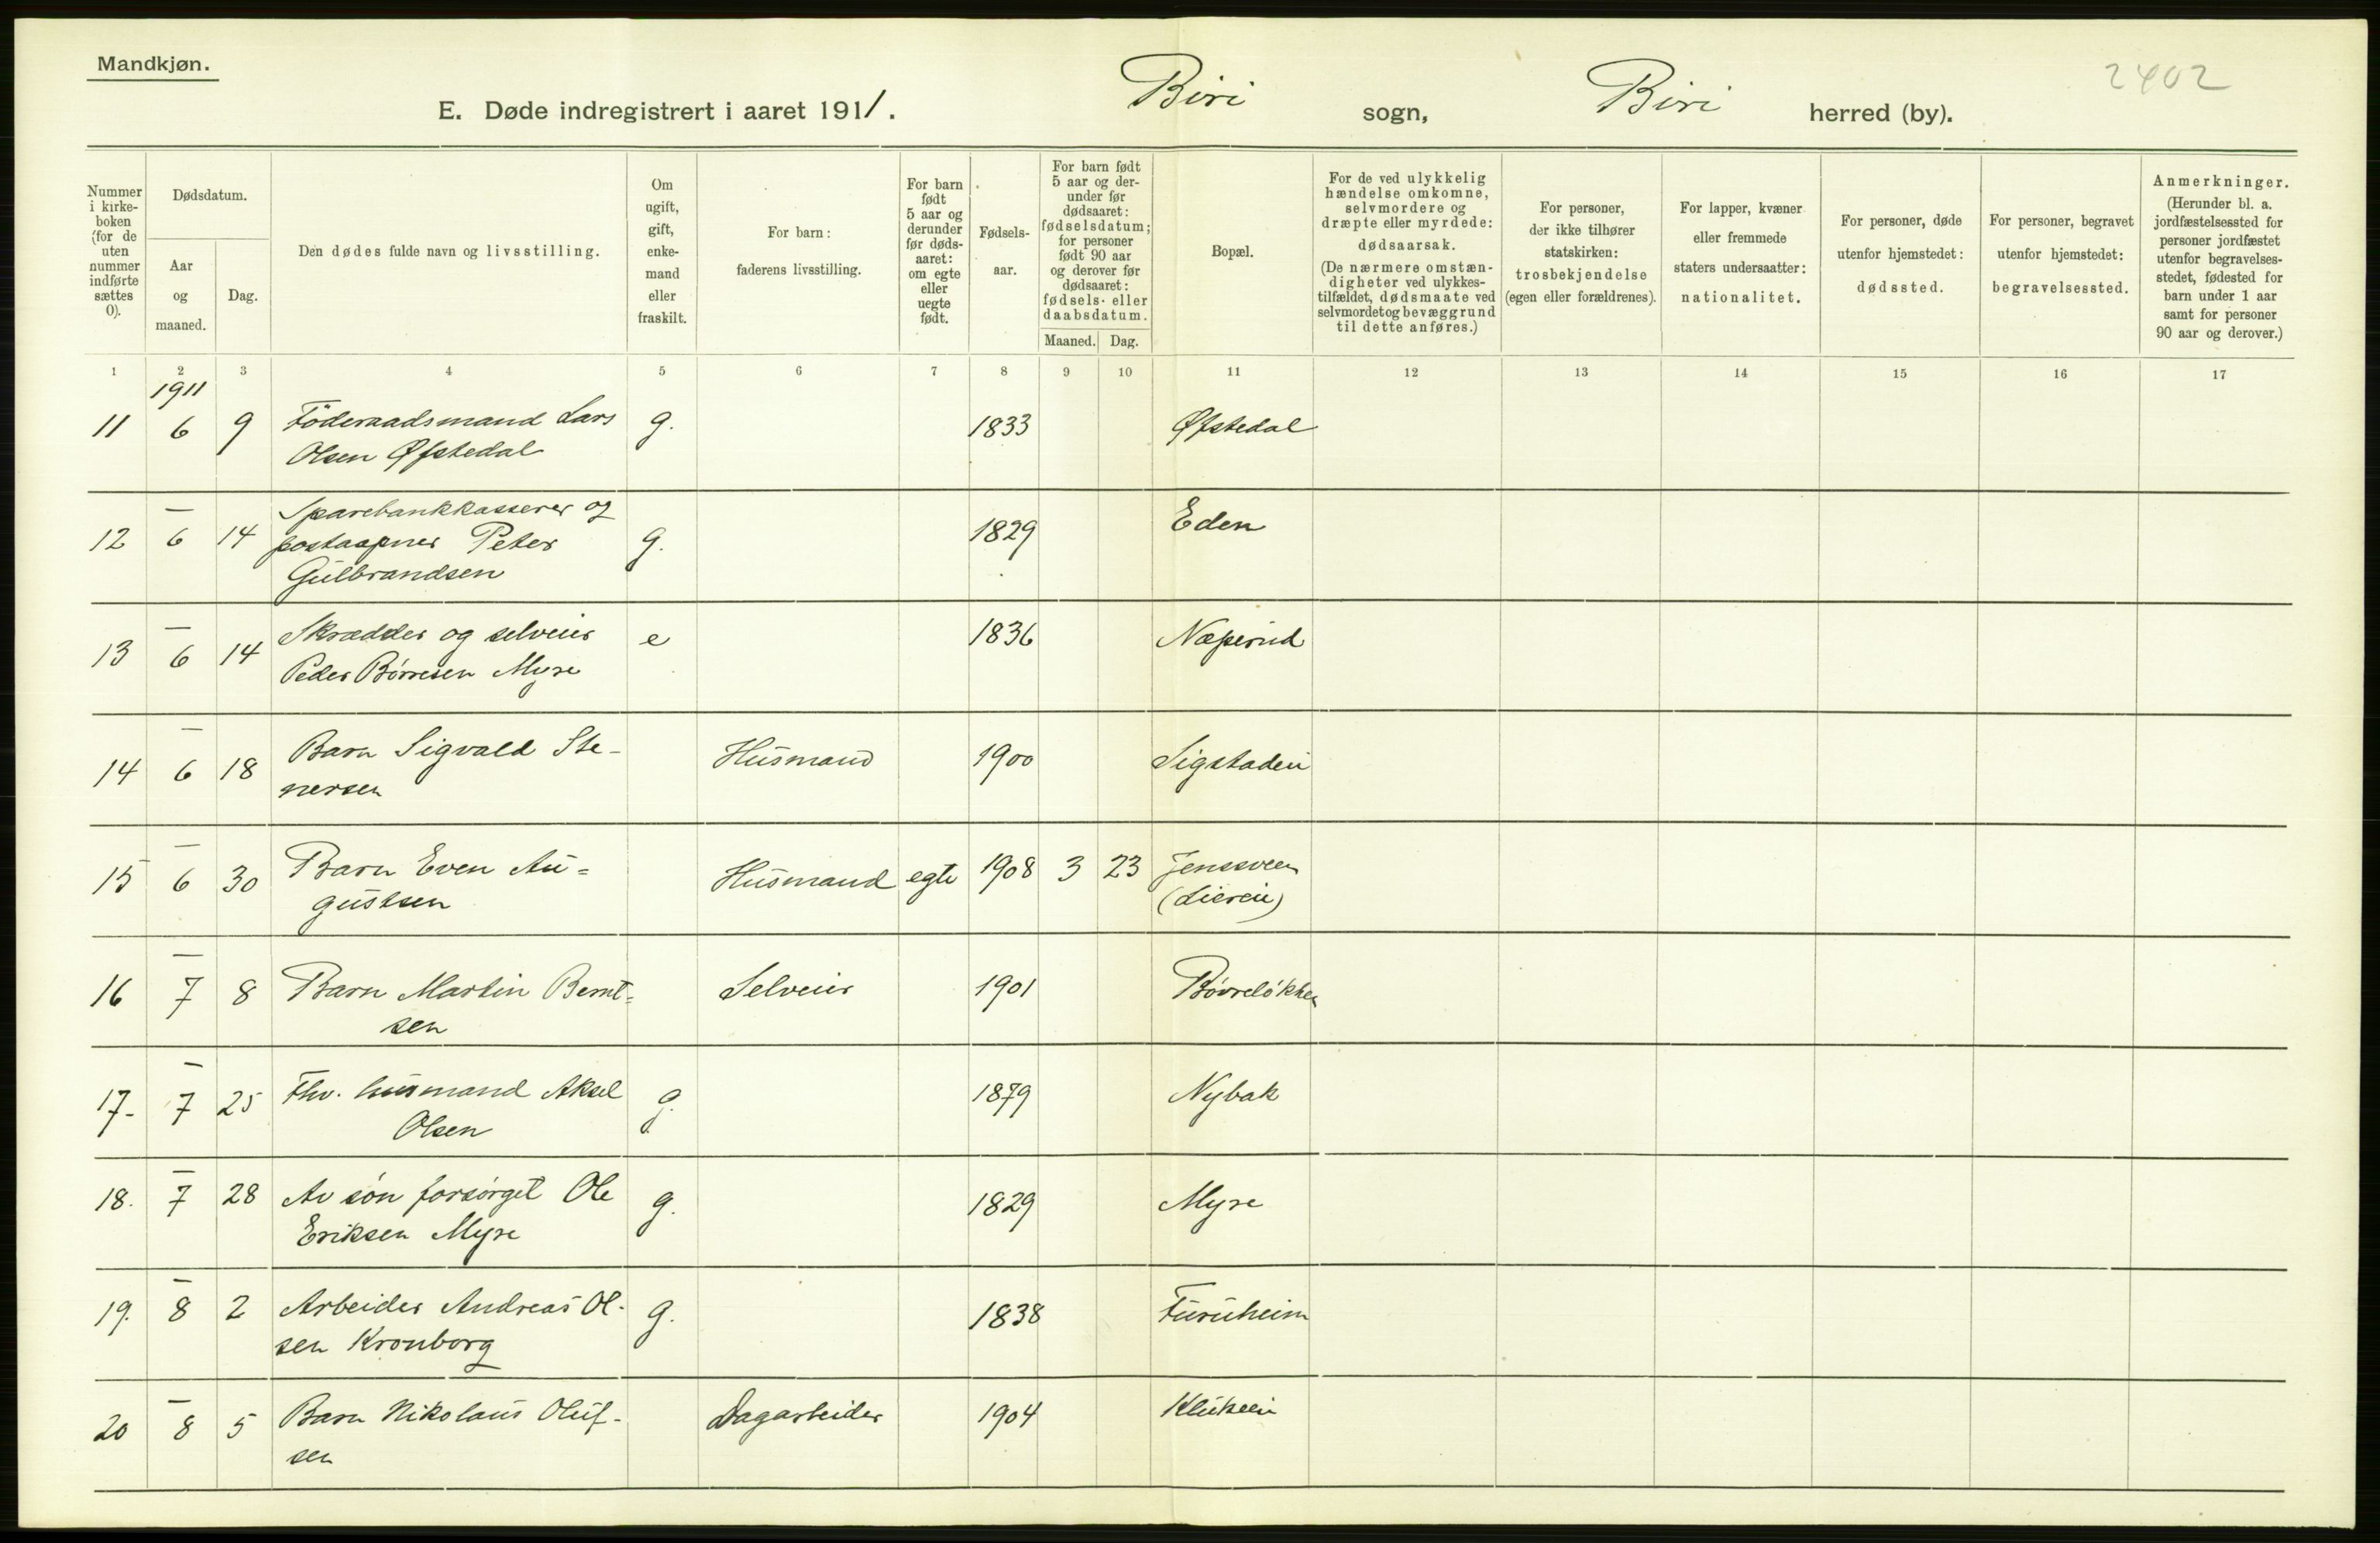 Mandkjøn.
E. Døde indregistrert i aaret 1911. Biri sogn, Biri herred (by).
2402
Nummer
i kirke-
boken
(for de
uten
nummer
indførte
sættes
0).
Dødsdatum.
Aar
og
maaned.
Dag.
Den dødes fulde navn og livsstilling.
Om
ugift,
gift,
enke-
mand
eller
fraskilt.
For barn:
faderens livsstilling.
For barn
født
5 aar og
derunder
før døds-
aaret:
om egte
eller
uegte
født.
Fødsels-
aar.
For barn født
5 aar og der-
under før
dødsaaret:
fødselsdatum;
for personer
født 90 aar
og derover før
dødsaaret:
fødsels- eller
daabsdatum.
Maaned. Dag.
Bopæl.
For de ved ulykkelig
hændelse omkomne,
selvmordere og
dræpte eller myrdede:
dødsaarsak.
(De nærmere omstæn-
digheter ved ulykkes-
tilfældet, dødsmaate ved
selvmordet og bevæggrund
til dette anføres.)
For personer,
der ikke tilhører
statskirken:
trosbekjendelse
(egen eller forældrenes).
For lapper, kvæner
eller fremmede
staters undersaatter:
nationalitet.
For personer, døde
utenfor hjemstedet:
dødssted.
For personer, begravet
utenfor hjemstedet:
begravelsessted.
Anmerkninger.
(Herunder bl. a.
jordfæstelsessted for
personer jordfæstet
utenfor begravelses-
stedet, fødested for
barn under 1 aar
samt for personer
90 aar og derover.)
1 2 3 4 5 6 7 8 9 10 11 12 13 14 15 16 17
1911
11 6 9 Föderaadsmand Lars g. 1833 Øfstedal
Olsen Øfstedal
— Sparebankkasserer og
12 6 14 postaapner Peter g. 1829 Eden
Gulbrandsen
—
13 6 14 Skrædder og selveier e 1836 Næperud
Peder Börresen Myre
—
14 6 18 Barn Sigvald Ste- Husmand 1900 Sigstadei
nersen
—
15 6 30 Barn Even Au= Husmand egte 1908 3 23 Jenssveen
gustsen
—
16 7 8 Barn Martin Bernt= Selveier 1901 Bövrelökken
sen
—
17- 7 25 Fhv. husmand Aksel g. 1879 Nybak
Olsen
—
18. 7 28 Av sön forsörget Ole g. 1829 Myre
Eriksen Myre
—
19. 8 2 Arbeider Andreas Ol- g. 1838 Furuheim
sen Kronborg
—
20 8 5 Barn Nikolaus Oluf- Dagarbeider 1904
sen